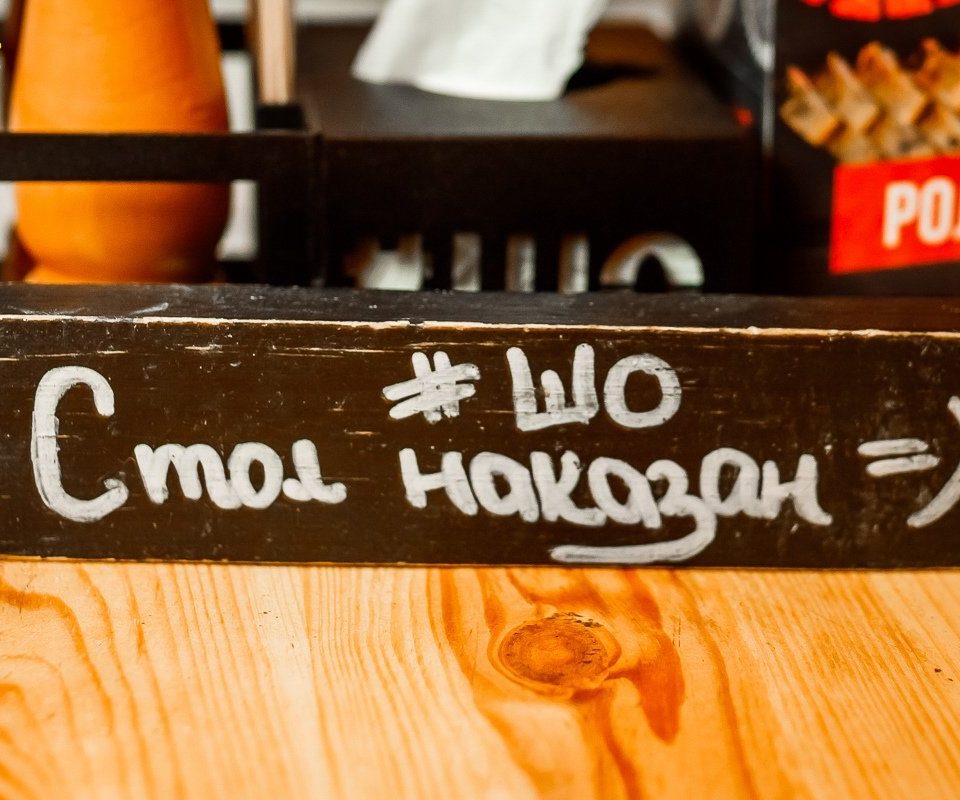 РО
#ШО
Стол наказан =)